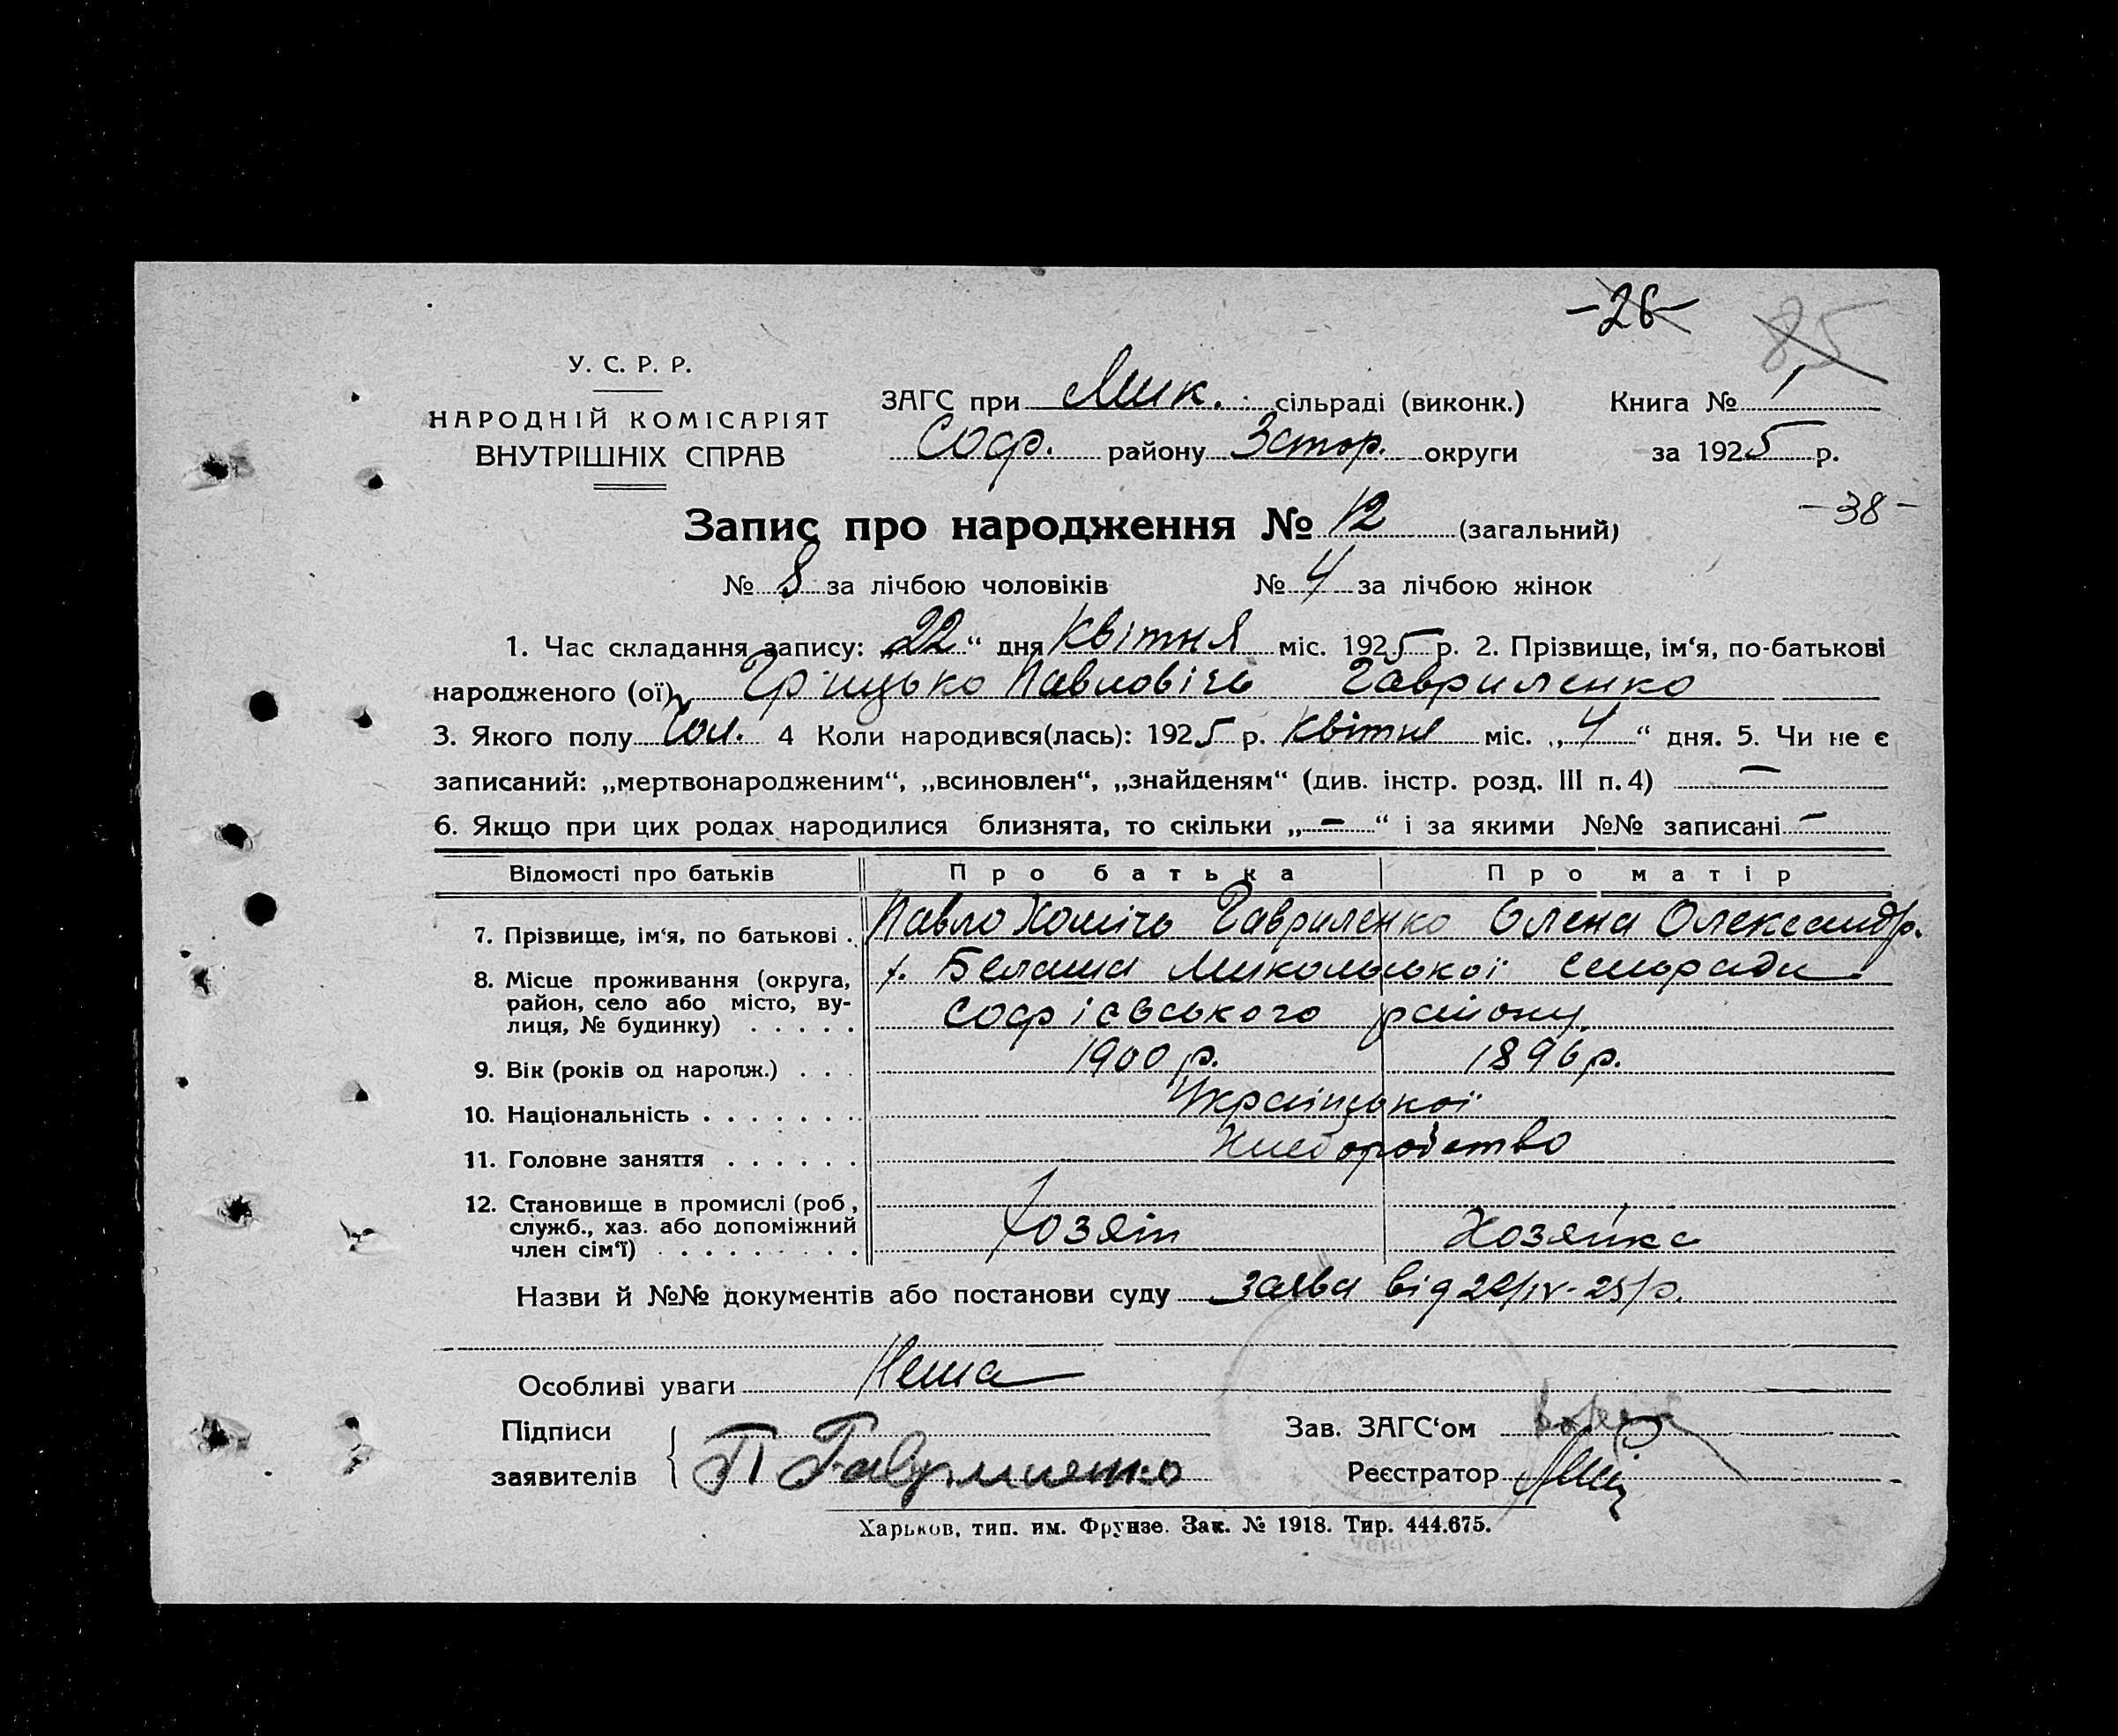 -26-
85
У. С. Р. Р.
НАРОДНІЙ КОМІСАРІЯТ
ВНУТРІШНІХ СПРАВ
ЗАГС при Мик. сільраді (виконк.) Книга № 1
Соф. району Запор. округи за 1925 р.
-38-
Запис про народження № 12 (загальний)
№ 8 за лічбою чоловіків № 4 за лічбою жінок
1. Час складання запису: „22“ дня Квітня міс. 1925 р. 2. Прізвище, ім‘я, по-батькові
народженого (ої) Грицько Павловічь Гавриленко
3. Якого полу Чол. 4 Коли народився(лась): 1925 р. Квітня міс. „4“ дня. 5. Чи не є
записаний: „мертвонародженим“, „всиновлен“, „знайденям“ (див. інстр. розд. III п. 4) —
6. Якщо при цих родах народилися близнята, то скільки „—“ і за якими №№ записані —
Відомості про батьків Про батька Про матір
7. Прізвище, ім‘я, по батькові . Павло Хомічь Гавриленко Олена Олександр.
8. Місце проживання (округа, х. Белаша Микольської сельради
район, село або місто, ву- Софієвського району
лиця, № будинку) . . . . .
9. Вік (років од народж.) . . . 1900 р. 1896 р.
10. Національність . . . . . . . Української
11. Головне заняття . . . . . . Хлеборобство
12. Становище в промислі (роб,
служб., хаз. або допоміжний Хозяін Хозяйка
член сім‘ї) . . . . . . . . .
Назви й №№ документів або постанови суду Заява від 22/IV-25/р.
Особливі уваги Нема
Підписи Зав. ЗАГС‘ом
заявителів П Гавриленко Реєстратор
Харьков, тип. им. Фрунзе. Зак. № 1918. Тир. 444.675.